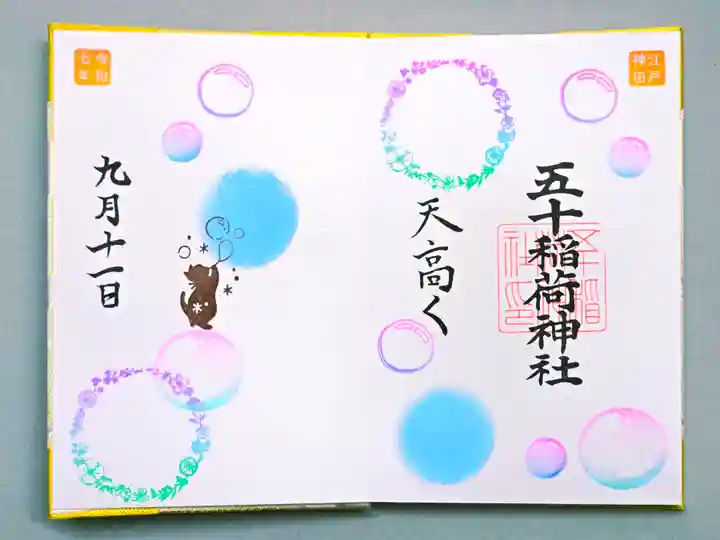 江戸
神田
五十稲荷神社
天高く
令和
七年
九月十一日